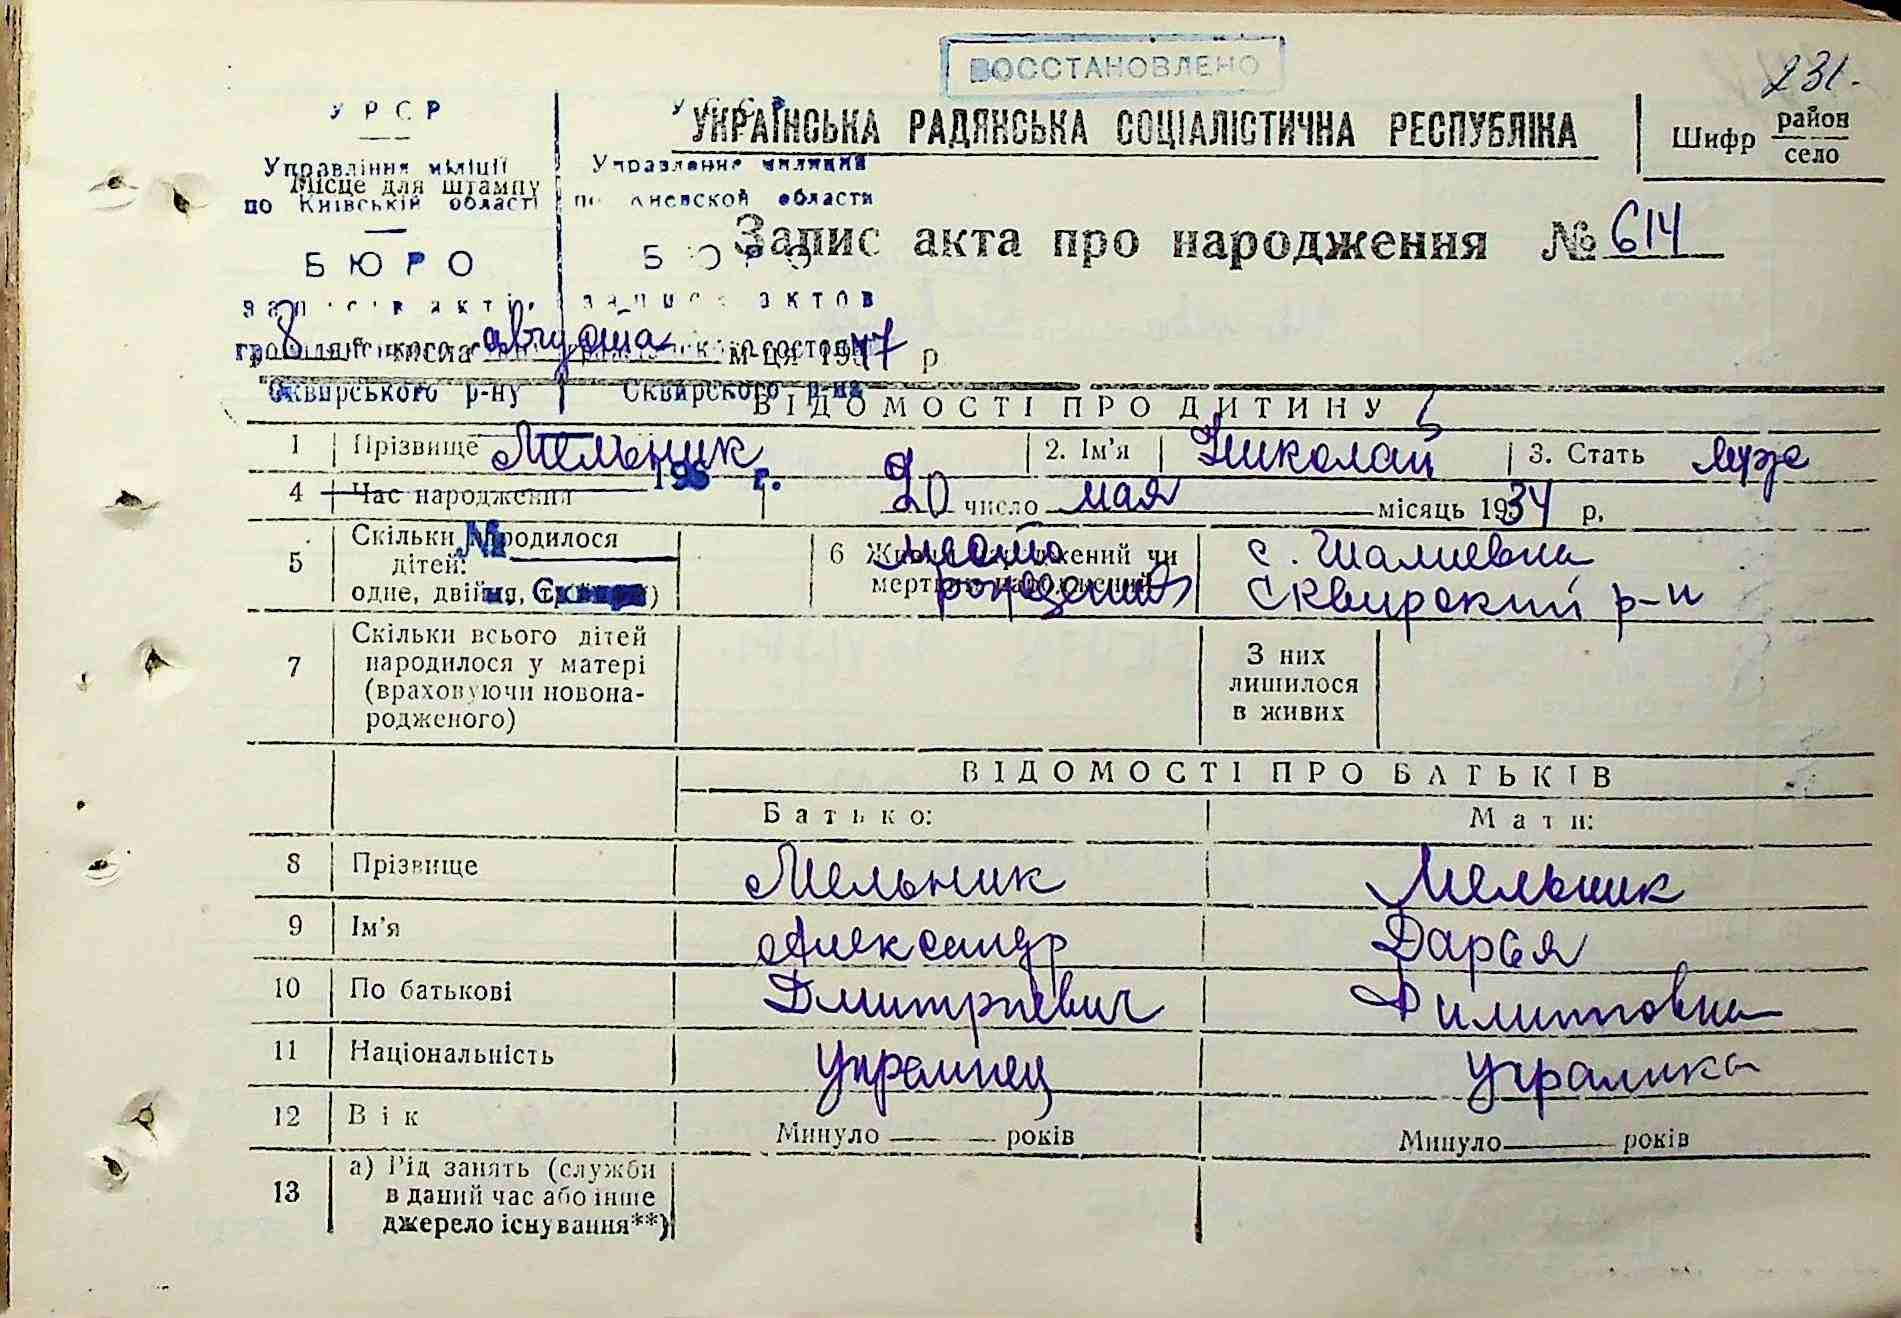 231.
ВОССТАНОВЛЕНО
УРСР
УССР
УКРАЇНСЬКА РАДЯНСЬКА СОЦІАЛІСТИЧНА РЕСПУБЛІКА
Шифр район село
Управління міліції
Управления милиции
Місце для штампу
по Київській області
по Киевской области
Запис акта про народження № 614
БЮРО
БЮРО
записів актів
записи актов
8 числа августа м-ця 1947 р
Сквирського р-ну
Сквирского р-на
ВІДОМОСТІ ПРО ДИТИНУ
1 Прізвище Мельник 2. Ім'я Николай 3. Стать муж
195 г.
4 Час народження 20 число мая місяць 1934 р.
5 Скільки народилося
дітей:
одне, двійня,
№
6 Живонароджений чи
мертвонароджений
место
рождения
с. Шалиевка
Сквирский р-н
7 Скільки всього дітей
народилося у матері
(враховуючи новона-
родженого)
З них
лишилося
в живих
ВІДОМОСТІ ПРО БАТЬКІВ
Батько: Мати:
8 Прізвище Мельник Мельник
9 Ім'я Александр Дарья
10 По батькові Дмитриевич Филипповна
11 Національність украинец украинка
12 Вік Минуло — — років Минуло — років
13 а) Рід занять (служби
в даний час або інше
джерело існування**)